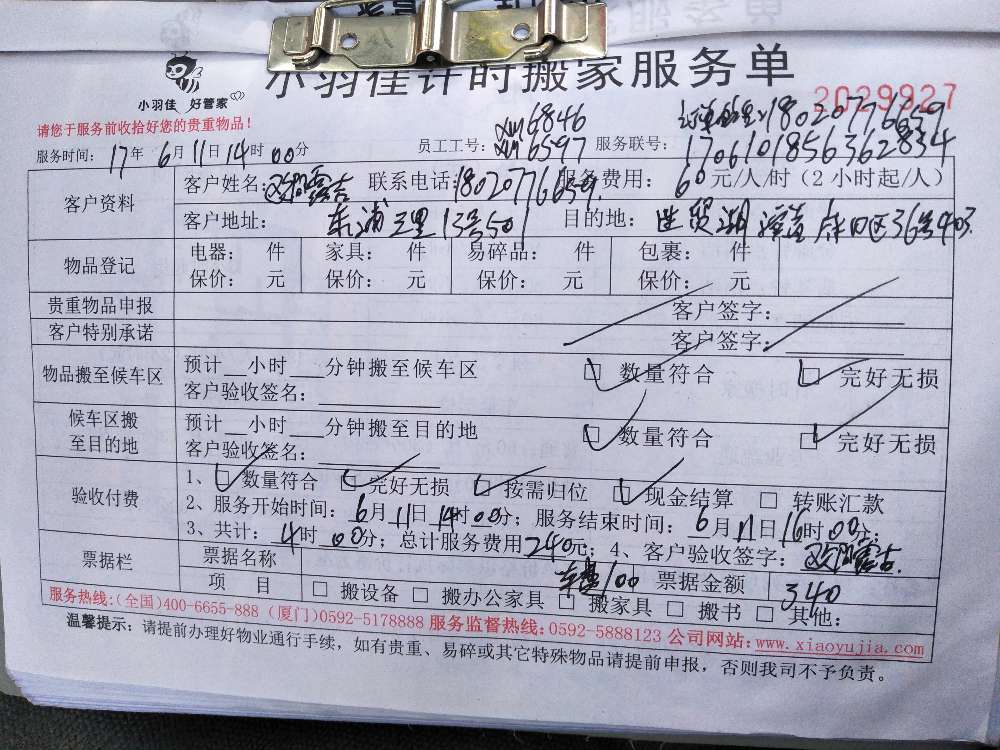 小羽佳计时搬家服务单
小羽佳 好管家
2029927
请您于服务前收拾好您的贵重物品!
18020776659
服务时间: 17年 6月11日14时00分 员工工号: xm6846 xm6597 服务联号: 1706101856362834
客户资料 客户姓名: 联系电话: 18020776659 服务费用: 60元/人/时(2小时起/人)
客户地址: 东浦三里13号501 目的地: 世贸湖滨首府 区36号403
物品登记 电器: 件 家具: 件 易碎品: 件 包裹: 件
保价: 元 保价: 元 保价: 元 保价: 元
贵重物品申报 客户签字:
客户特别承诺 客户签字:
物品搬至候车区 预计__小时___分钟搬至候车区 □ 数量符合 □ 完好无损
客户验收签名:
候车区搬至目的地 预计__小时___分钟搬至目的地 □ 数量符合 □ 完好无损
客户验收签名:
验收付费 1、□ 数量符合 □ 完好无损 □ 按需归位 □ 现金结算 □ 转账汇款
2、服务开始时间: 6月11日14时00分; 服务结束时间: 6月11日16时00分;
3、共计: 4时00分; 总计服务费用240元; 4、客户验收签字:
票据栏 票据名称 车费100 票据金额 340
项 目 □ 搬设备 □ 搬办公家具 □ 搬家具 □ 搬书 □ 其他:
服务热线:(全国)400-6655-888 (厦门)0592-5178888 服务监督热线:0592-5888123 公司网站:www.xiaoyujia.com
温馨提示: 请提前办理好物业通行手续, 如有贵重、易碎或其它特殊物品请提前申报, 否则我司不予负责。